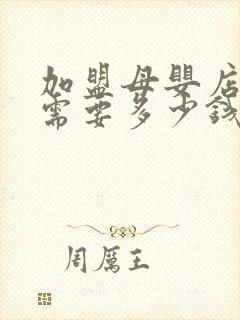 加盟母婴店
需要多少钱
周厲王